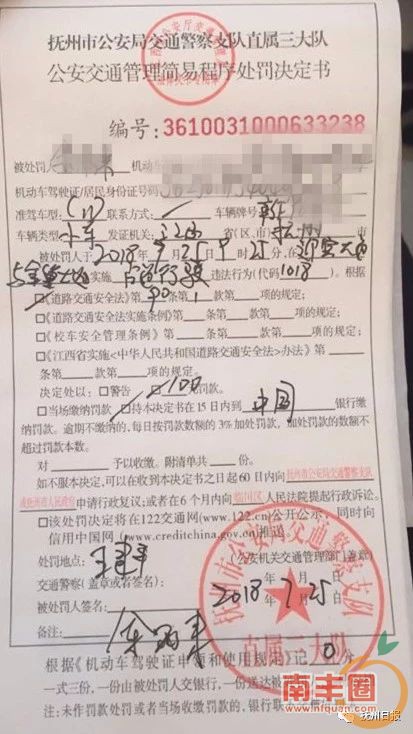 抚州市公安局交通警察支队直属三大队
公安交通管理简易程序处罚决定书
编号:3610031000633238
被处罚人 机动车
机动车驾驶证/居民身份证号码
准驾车型 C1 联系方式 车辆牌号
车辆类型 小车 发证机关 江西 省(区、市) 抚州
被处罚人于 2018 年 7 月 25 日 9 时 25 分,在 迎宾大道
实施 违法行为(代码 1018 )。根据
□《道路交通安全法》第 90 条 款第 项的规定;
□《道路交通安全法实施条例》第 条第 款的规定;
□《校车安全管理条例》第 条第 款的规定;
□《江西省实施<中华人民共和国道路交通安全法>办法》第
条第 款第 项的规定。
决定处以:□警告 100 元罚款。
□当场缴纳罚款 □持本决定书在15日内到 中国 银行缴
纳罚款。逾期不缴纳的,每日按罚款数额的3%加处罚款,加处罚款的数额不
超过罚款本数。
对 予以收缴。附清单共 份。
如不服本决定,可以在收到本决定书之日起60日内向 抚州市公安局交通警察支队
或抚州市人民政府 申请行政复议;或者在6个月内向 临川区 人民法院提起行政诉讼。
□该处罚决定将在122交通网(www.122.cn)公开公示,同时向
信用中国网(www.creditchina.gov.cn)推送。
处罚地点:
公安机关交通管理部门(盖章)
交通警察(盖章或者签名):
2018 年 7 月 25 日
被处罚人签名:
备注:
抚州市公安局交通警察支队
直属三大队
根据《机动车驾驶证申领和使用规定》记 0 分
一式三份,一份由被处罚人交银行,一份送达被
注:未作罚款处罚或者当场收缴罚款的,银行联不
南丰圈
www.nfquan.com
抚州日报